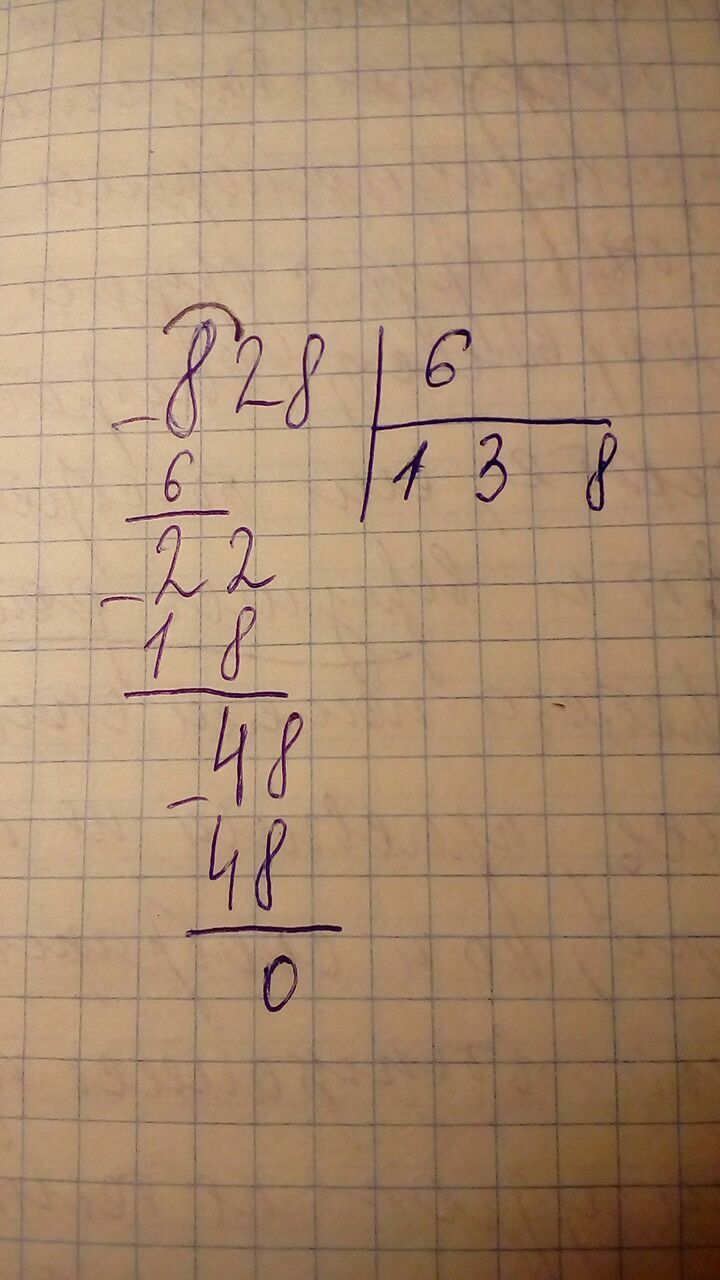 -828 | 6
6 | 1 3 8
-22
18
-48
48
0